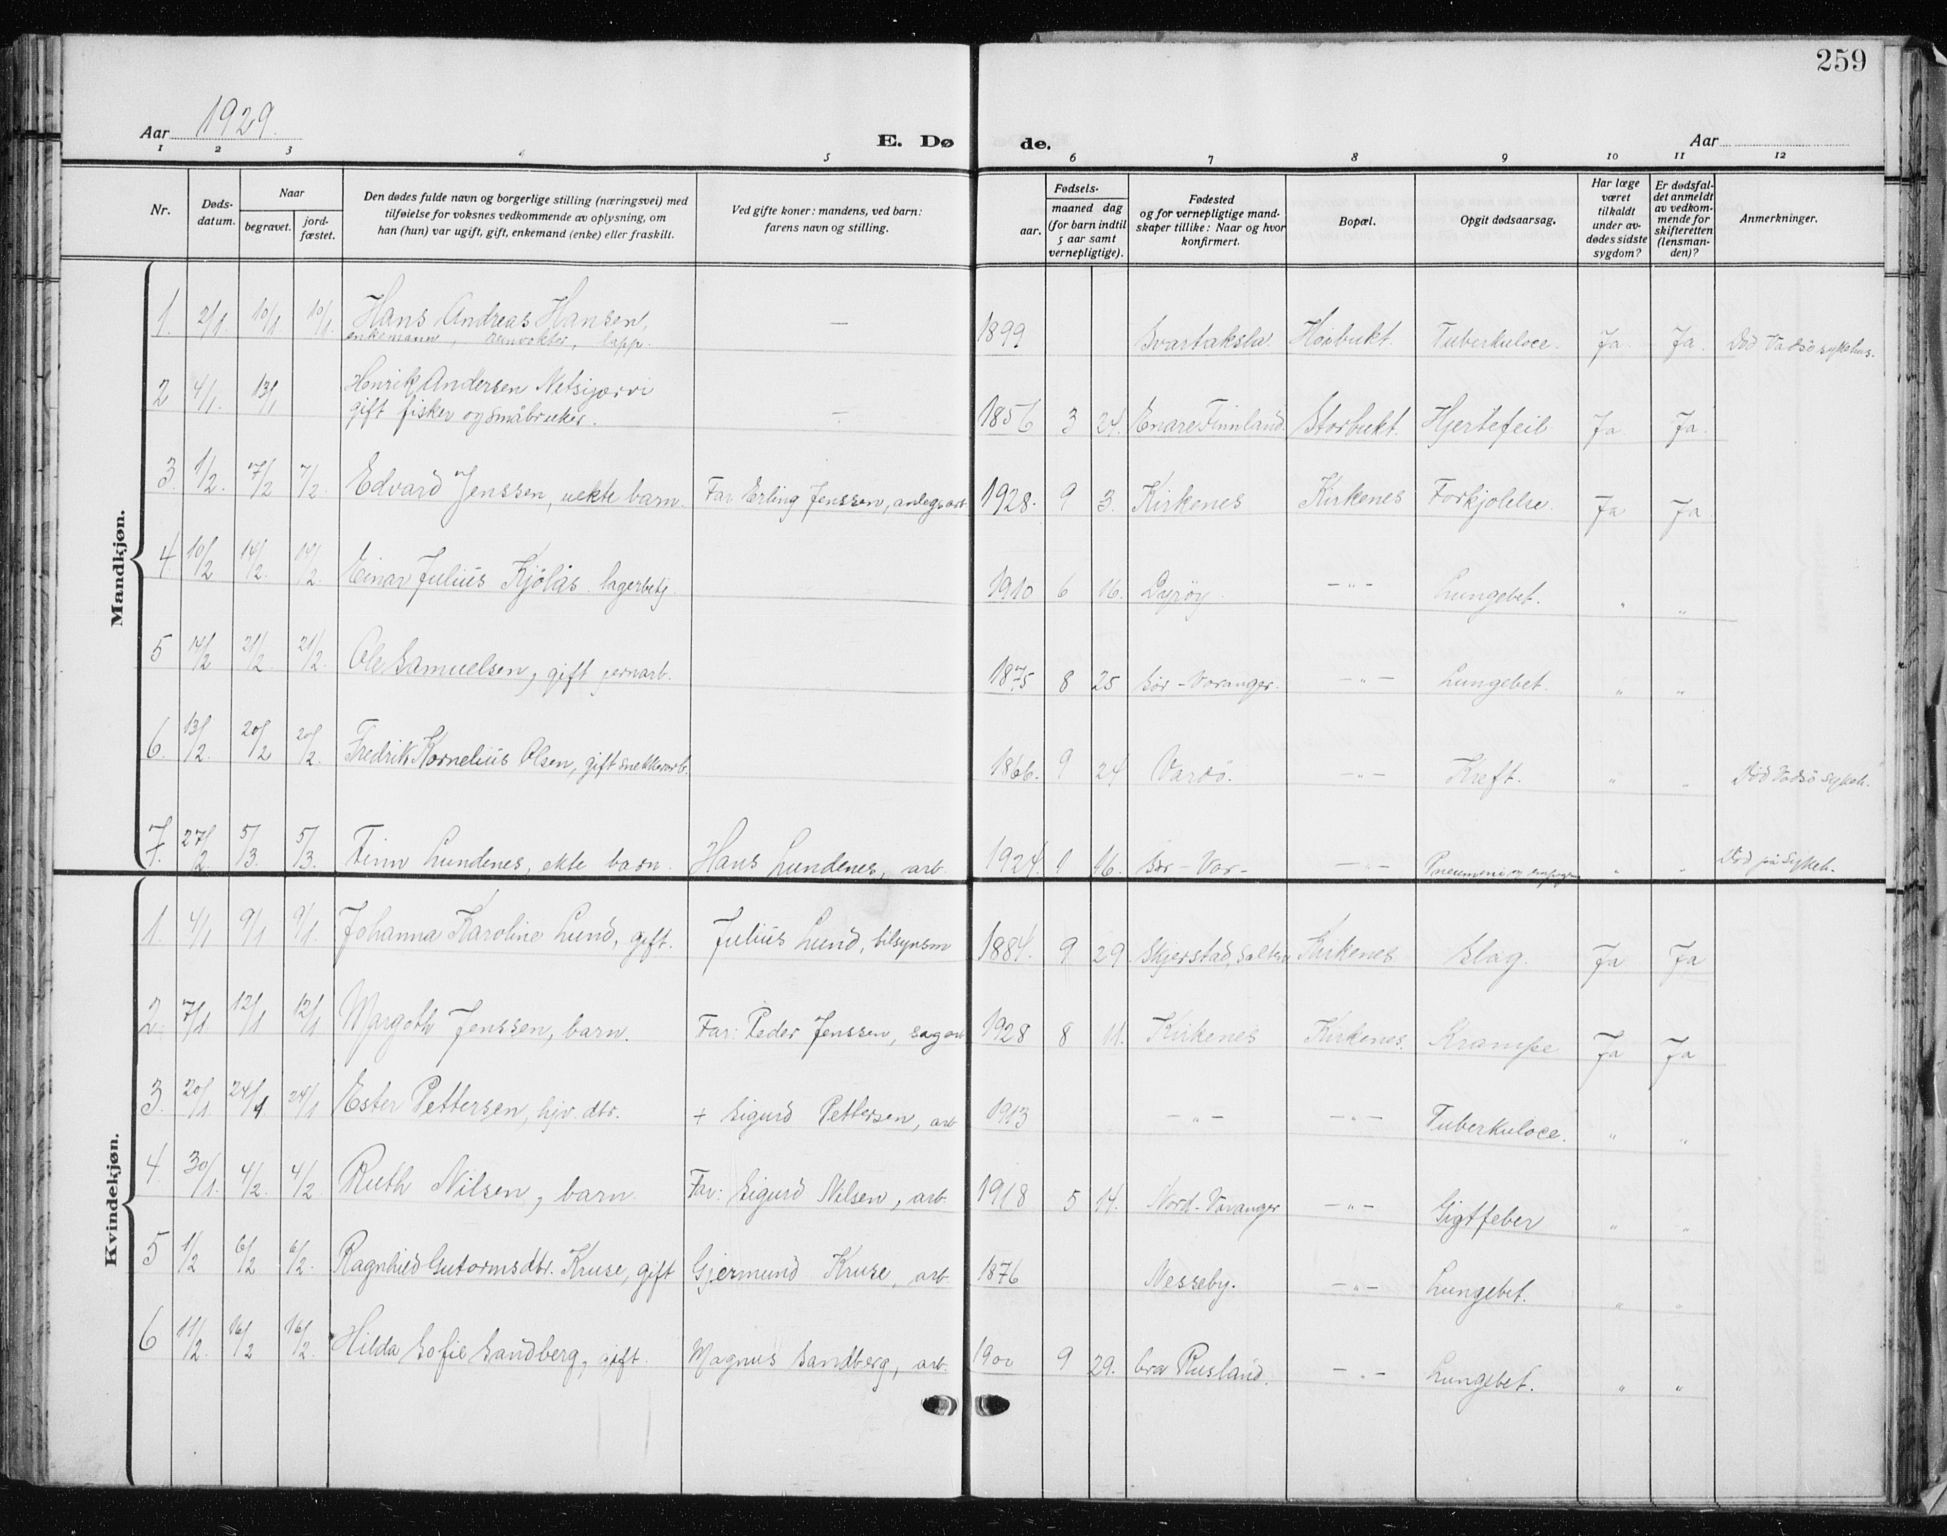 259
Aar 1929.
E. Døde.
Aar
1 2 3 4 5 6 7 8 9 10 11 12
Nr.
Døds-
datum.
Naar
begravet.
jord-
fæstet.
Den dødes fulde navn og borgerlige stilling (næringsvei) med
tilføielse for voksnes vedkommende av oplysning, om
han (hun) var ugift, gift, enkemand (enke) eller fraskilt.
Ved gifte koner: mandens, ved barn:
farens navn og stilling.
Fødsels-
aar.
maaned dag
(for barn indtil
5 aar samt
vernepligtige).
Fødested
og for vernepligtige mand-
skaper tillike: Naar og hvor
konfirmert.
Bopæl.
Opgit dødsaarsag.
Har læge
været
tilkaldt
under av-
dødes sidste
sygdom?
Er dødsfal-
det anmeldt
av vedkom-
mende for
skifteretten
(lensman-
den)?
Anmerkninger.
Mandkjøn.
1. 2/1. 10/1. 10/1. Hans Andreas Hansen, — 1899 Svartaksla Horbukt. Tuberkuloce. Ja. Ja. Död Vadsö sykehus.
enkemann, lapp.
2 4/1. 13/1 Henrik Andersen Netsijærvi
gift fisker og småbruker. — 1856 3 24. Enare Finnland Storbukt. Hjertefeil Ja. Ja.
3. 1/2. 7/2 7/2. Edvard Jenssen, uekte barn. Far Erling Jenssen, anlegsarb. 1928. 9 3. Kirkenes Kirkenes Forkjölelse. Ja Ja
4. 10/2 14/2. 14/2. Einar Julius Kjölås. lagerbetj. 1910 6 16. Dyröy. — " — Lungebet. " "
5 14/2 21/2. 21/2. Ole Samuelsen, gift jernarb. 1875 8 25 Sör-Varanger. — " — Lungebet. " "
6. 13/2. 20/2 20/2. Fredrik Kornelius Olsen, gift snekkerarb. 1866. 9 24 Vardö. — " — Kreft. " " Död Vadsö sykeh.
7. 27/2. 5/3. 5/3. Finn Lundenes, ekte barn. Hans Lundenes, arb. 1924. 9 16. Sör-Var- — " — Pneumoni og " " Död på sykeh.
Kvindekjøn.
1. 4/1 9/1 9/1. Johanna Karoline Lund, gift. Julius Lund, tilsynsm 1884. 9 29 Skjerstad, Salten Kirkenes Slag. Ja Ja
2. 7/1 12/1 12/1 Margoth Jenssen, barn. Far: Peder Jenssen, sagarb 1928 8 11. Kirkenes Kirkenes. Krampe Ja Ja
3. 20/1. 24/1 24/1 Ester Pettersen, hjv. dtr. + Sigurd Pettersen, arb 1913 — " — — " — Tuberkuloce. " "
4. 30/1. 4/2. 4/2 Ruth Nilsen, barn. Far: Sigurd Nilsen, arb. 1918 5 14. Nord-Varanger — " — Gigtfeber " "
5 1/2 6/2 6/2. Ragnhild Gutormsdtr. Kruse, gift Gjermund Kruse, arb. 1876 Nesseby. — " — Lungebet. " "
6 11/2. 16/2 16/2. Hilda Sofie Sandberg, gift. Magnus Sandberg, arb. 1900 9 29. Rusland. — " — Lungebet. " "